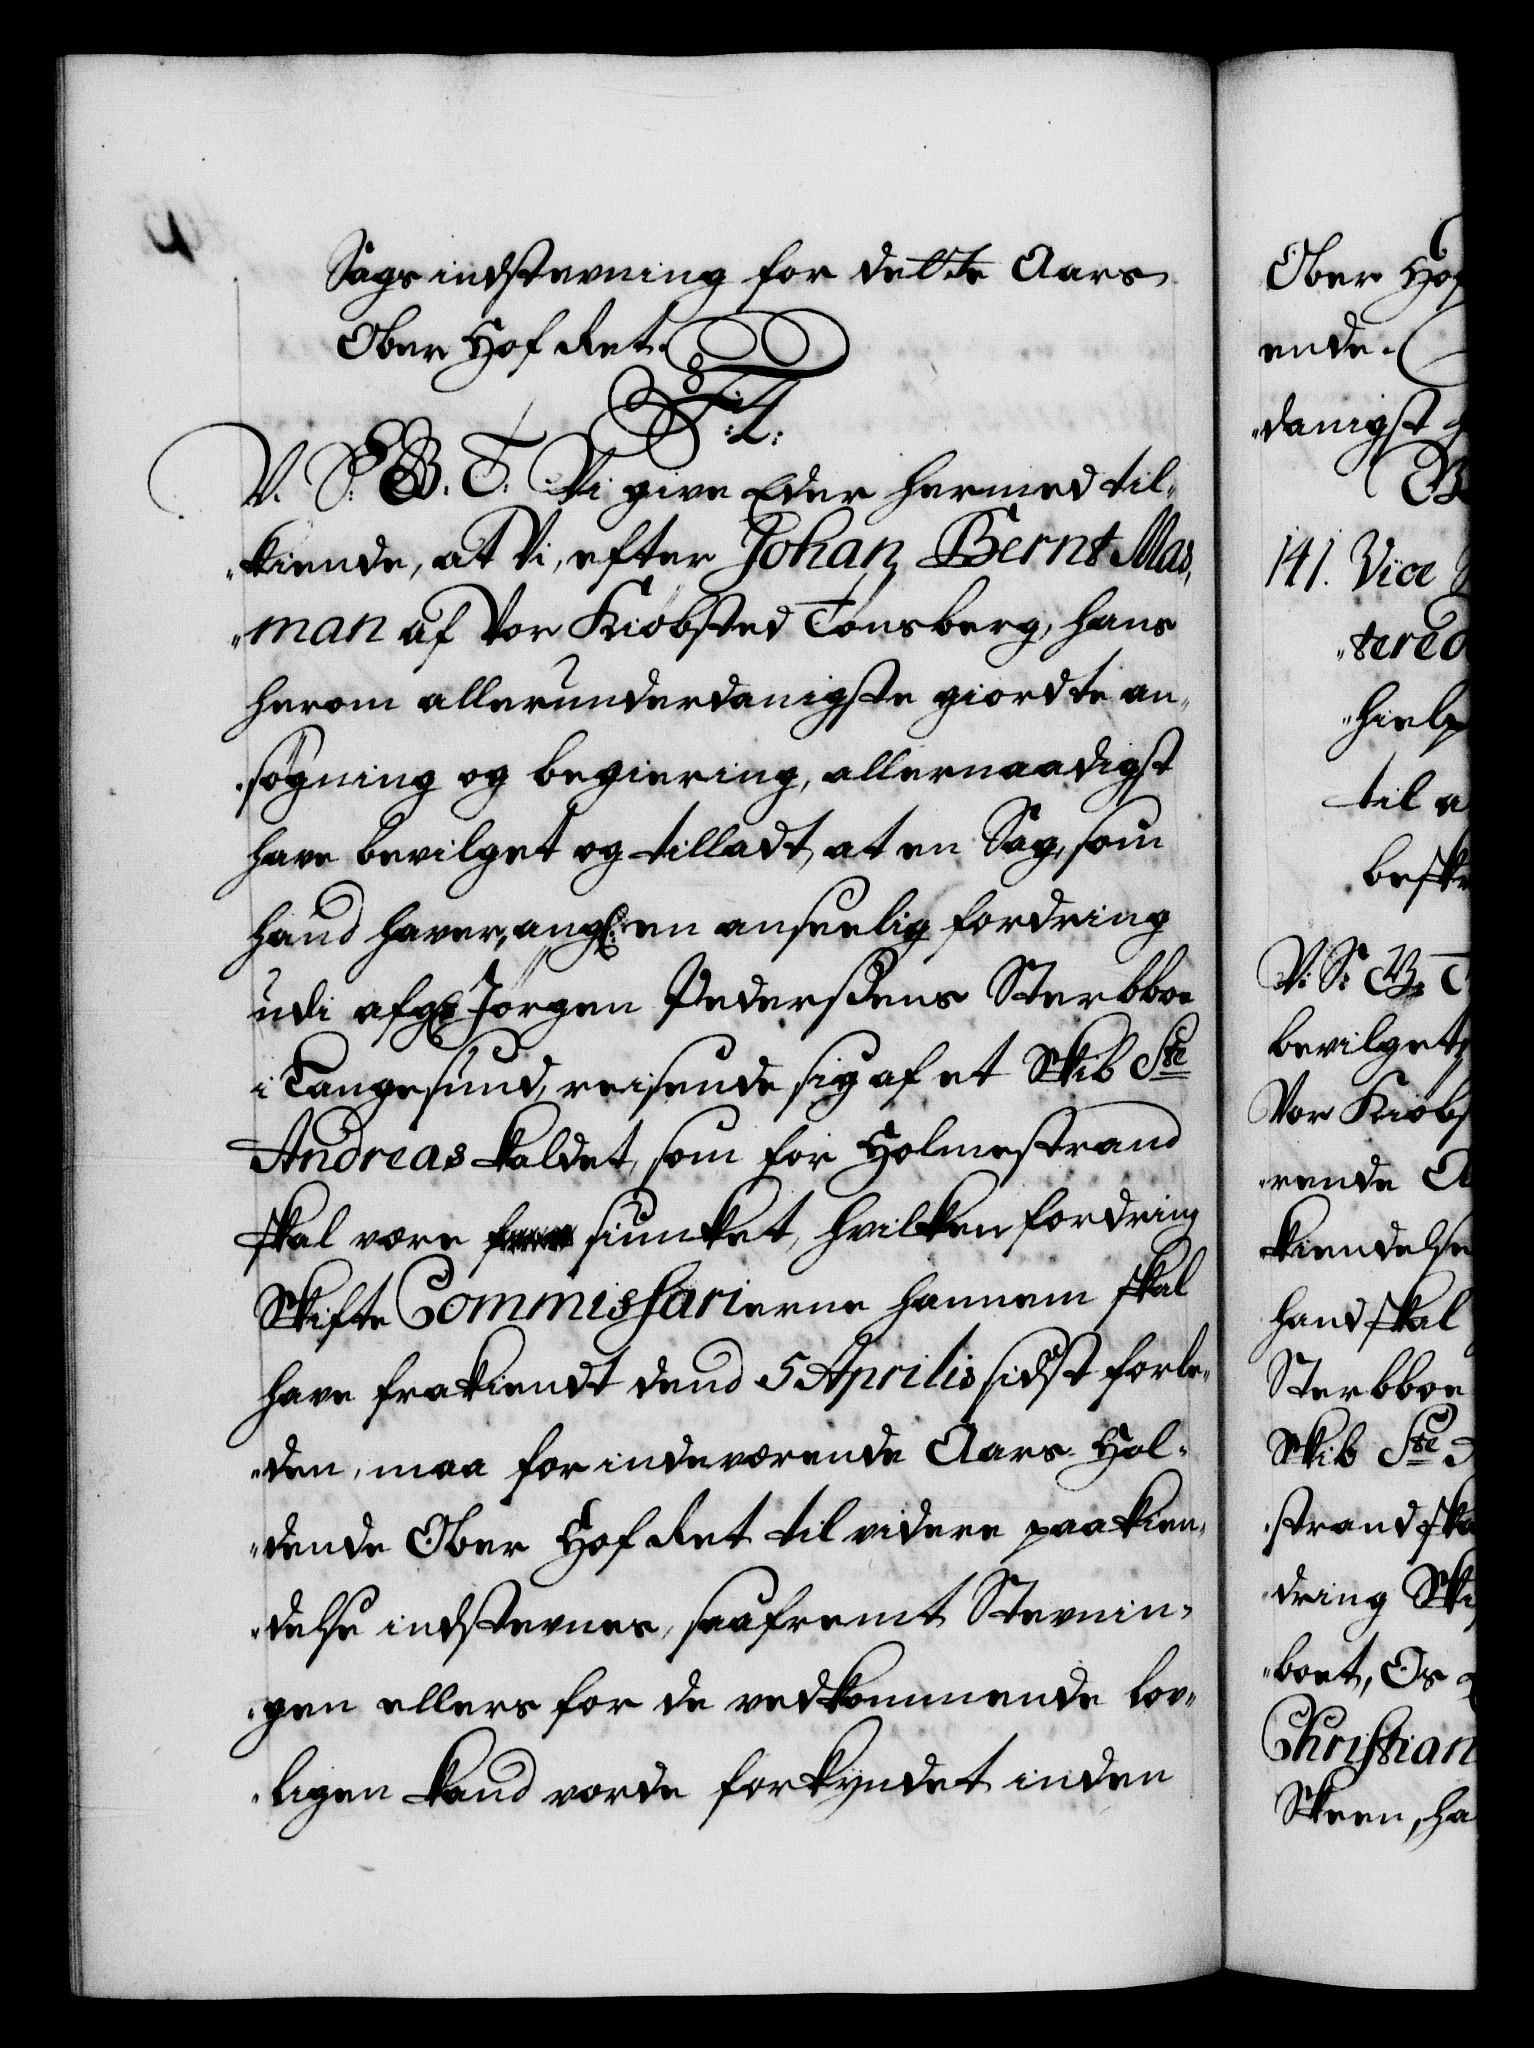 Sags indstevning for dette Aars
Ober Hof Ret.
F: 4:
V. S: G B. T: Vi give Eder hermed til„
„kiende, at Vi, efter Johan Bernt Mas„
„man af Vor Kiøbsted Tønsberg, hans
herom allerunderdanigste giordte an„
„søgning og begiering, allernaadigst
have bevilget og tilladt, at en Sag, som
hand haver, angl: en anseelig fordring
udi afgl: Jørgen Pedersens Sterbboe
i Tangesund, reisende sig af et Skib Ste
Andreas kaldet, som for Holmestrand
skal være siunket, hvilken fordring
Skifte Commissarierne hannem skal
have frakiendt dend 5 Aprilis sidst forle„
„den, maa for indeværende Aars Hol„
„dende Ober Hof Ret til videre paakien„
„delse indstevnes, saafremt Stevnin„
„gen ellers for de vedkommende lov„
„ligen kand vorde forkyndet inden
Ober Hof
ende.
„danigst
141. Vice
„tered
„hielp
til a
beskr
V: S: G B: T
bevilget
Vor Kiøbs
„rende A
kiendelse
hand skal
Sterbboe
Skib Ste
„strand ska
„dring Ski
„boet, Os
Christian
Skeen, ha